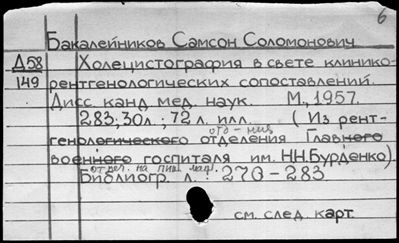 б
Бакалейников Самсон Соломонович
Д58 Холецистография в свете клинико-
149 рентгенологических сопоставлений.
Дисс. канд мед. наук. М., 1957.
283, 30л.; 72 л. илл. (Из рент-
генологического отделения Главного
военного госпиталя им. Н.Н.Бурденко).
отдел. на пиш. маш.
Библиогр. л.: 270-283
см. след. карт.